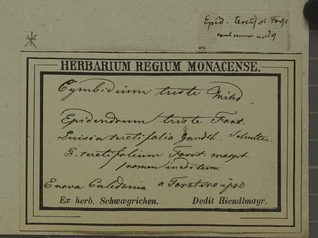 Epid. teretifol Forst
*
HERBARIUM REGIUM MONACENSE.
Cymbidium triste Willd.
Epidendrum triste Forst.
Luisia teretifolia Gaudh.
E. teretifolium Forst.
nomen ineditum
E nova Caledonia a Forstero ipso
Ex herb. Schwœgrichen. Dedit Hiendlmayr.